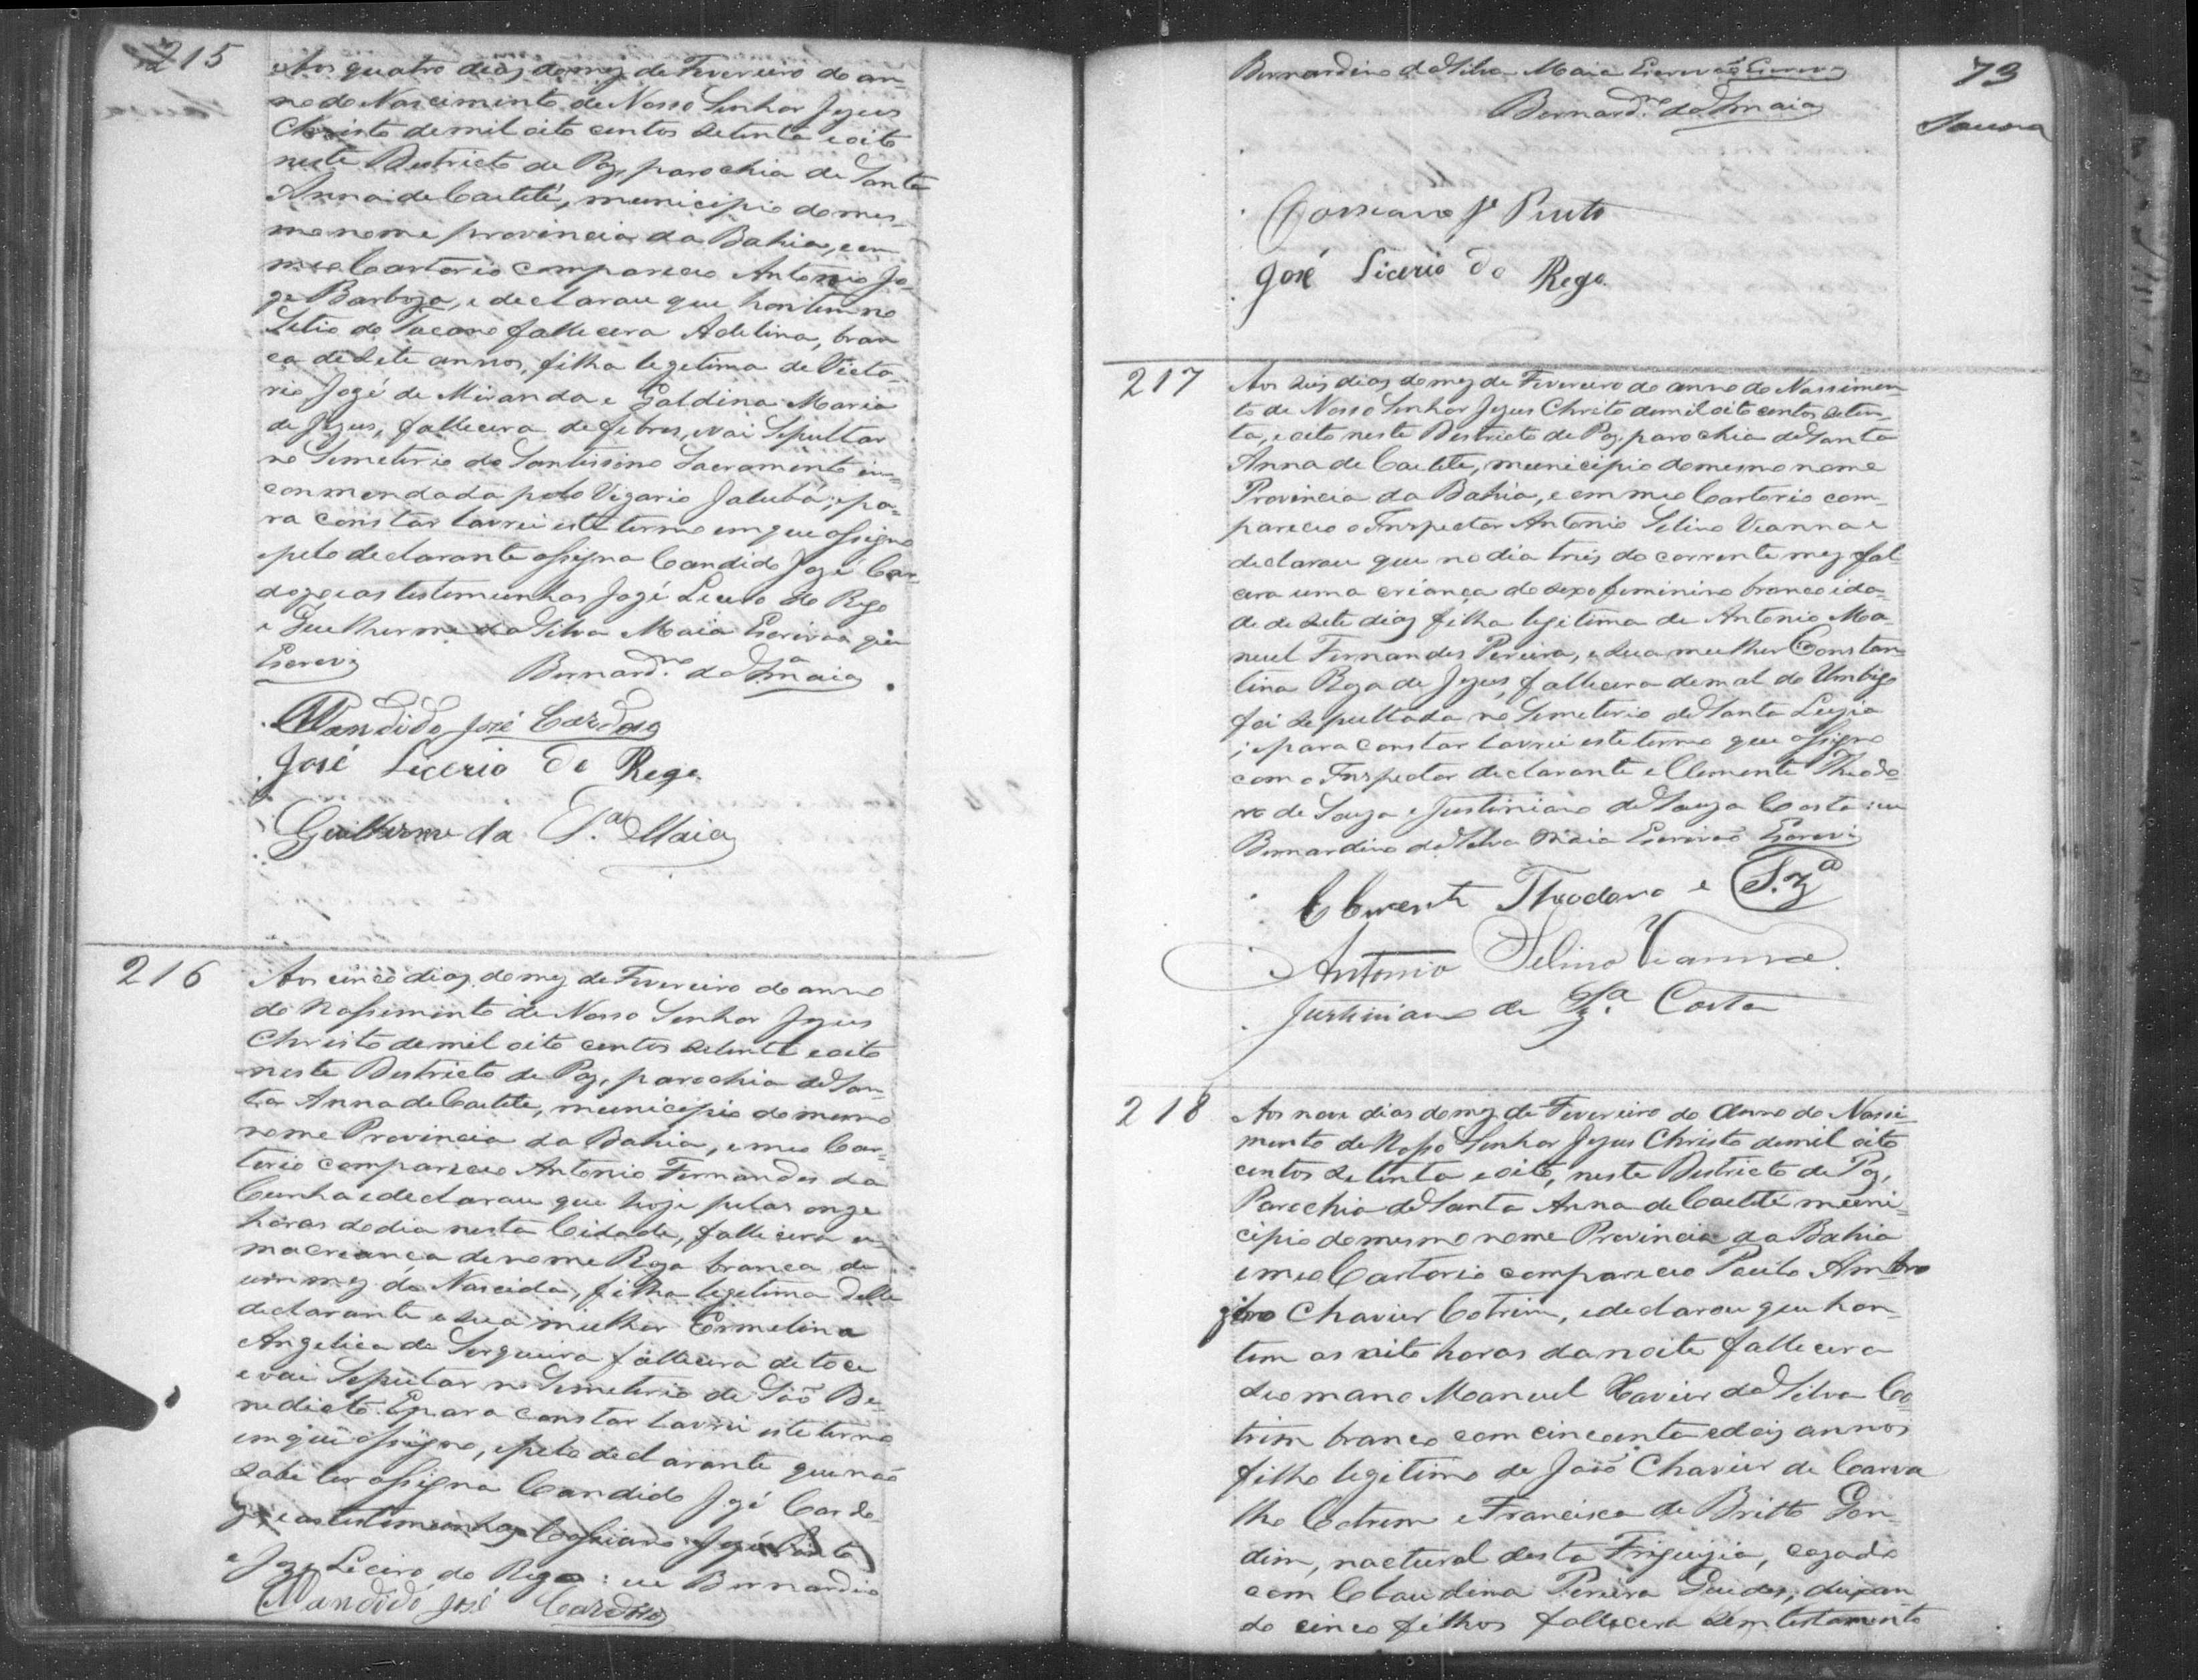 215
Aos quatro dias do mez de Fevereiro do an-
no do Nascimento de Nosso Senhor Jezus
Christo de mil oito centos setenta e oito
neste Destricto de Paz, parochia de Santa
Anna de Caetité, municipio do mes-
mo nome provincia da Bahia, e em
meo Cartorio compareceo Antonio Jo-
ze Barboza, e declarou que hontem no
Sitio do fallecera Adelina, bran
ca de sete annos, filha legetima de Victo-
rio Jozé de Miranda e Galdina Maria
de Jezus, fallecera de febres, e vai Sepultar
no Semeterio do Santissimo Sacramento in-
conmendada pelo Vigario Jatubá; e pa-
ra constar lavrei este termo em que assigno
e pelo declarante assigna Candido Jozé Car-
dozo e as testemunhas Jozé Licero do Rego
e Guilherme da Silva Maia Escrivão que
Escrevi
Bernard.no da S.a Maia
Candido José Cardoso
José Licerio do Rego
Guilherme da S.a Maia
216
Aos cinco dias do mez de Fevereiro do anno
do Nassimento de Nosso Senhor Jezus
Christo de mil oito centos setenta e oito
neste Destricto de Paz, parochia de San-
ta Anna de Caetite, municipio do mesmo
nome Provincia da Bahia, e meo Car-
torio compareceo Antonio Fernandes da
Cunha e declarou que hoje pelas onze
horas do dia nesta Cidade, fallecera u-
ma creança de nome Roza branca de
um mez de Nascida, filha legetima delle
declarante e sua mulher Ermelina
Angelica de Serqueira fallecera de toce
e vai Sepultar no Semeterio de São Be-
nedicto. E para constar lavrei este termo
em que assigno, e pelo declarante que não
sabe ler assigna Candido Jozé Cardo-
zo, e as testemunhas Cassiano José Pinto
e Joze Licero do Rego: eu Bernardino
Candido José Cardoso
73
Bernardino da Silva Maia Escrivão Escrevi
Bernard.no da S.a Maia
Cassiano J.e Pinto
José Licerio do Rego
217
Aos seis dias do mez de Fevereiro do anno do Nassimen-
to de Nosso Senhor Jezus Chrito de mil oito centos seten-
ta, e oito neste Destricto de Paz, parochia de Santa
Anna de Caetite, municipio do mesmo nome
Provincia da Bahia, e em meo Cartorio com-
pareceo o Inspector Antonio Selino Vianna e
declarou que no dia tres do corrente mez fal
cera uma criança do sexo feminino branco ida-
de de sete dias filha legitima de Antonio Ma-
nuel Fernandes Pereira, e sua mulher Constan-
tina Roza de Jezus, fallecera de mal do Umbigo
foi sepultada no Semeterio de Santa Luzia
; e para constar lavrei este termo que assigno
com o Inspector declarante e Clemente Theodo-
ro de Souza e Justiniano de Souza Costa: eu
Bernardino da Silva Maia Escrivão Escrevi
Clemente Theodoro e S.za
Antonio Selino Vianna
Justiniano de S.za Costa
218
Aos nove dias do mez de Fevereiro do Anno do Nassi-
mento de Nosso Senhor Jezus Christo de mil oito
centos setenta e oito, neste Destricto de Paz,
Parochia de Santa Anna de Caetité muni-
cipio do mesmo nome Provincia da Bahia
e meo Cartorio compareceo Paulo Ambro
zino Chavier Cotrim, e declarou que hon-
tem as oito horas da noite fallecera
seo mano Manuel Xavier da Silva Co-
trim branco com cincoenta e dois annos
filho legitimo de João Chavier de Carva
lho Cotrim e Francisca de Britto Gon-
dim, nactural desta Friguizia, cazado
com Claudina Pereira Guedes, deixan
do cinco filhos fallecera sem testamento